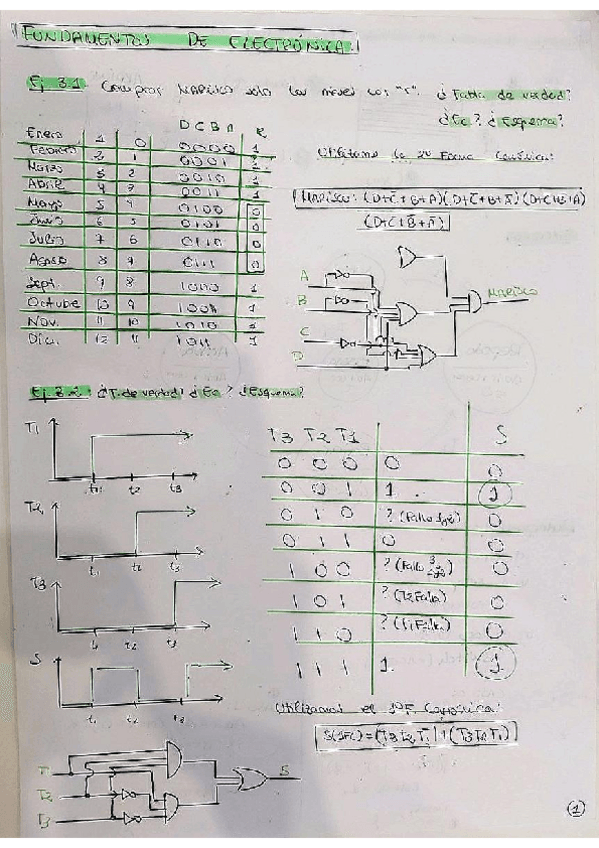 FUNDAMENTOS DE ELECTRÓNICA
Ej 3.1 Comprar MARISCO solo los meses con "r". ¿Tabla de verdad?
¿Ec? ¿Esquema?
D C B A R
Enero 1 0 0000 1
Febrero 2 1 0001 1
Marzo 3 2 0010 1
Abril 4 3 0011 1
Mayo 5 4 0100 0
Junio 6 5 0101 0
Julio 7 6 0110 0
Agosto 8 7 0111 0
Sept. 9 8 1000 1
Octubre 10 9 1001 1
Nov. 11 10 1010 1
Dic. 12 11 1011 1
Utilizamos la 2ª Forma Canónica:
MARISCO = (D+C̅+B+A)(D+C̅+B+A̅)(D+C̅+B̅+A)
(D+C̅+B̅+A̅)
A
B
C
D
MARISCO
Ej 3.2: ¿T. de verdad? ¿Ec? ¿Esquema?
T1
t1 t2 t3
T2
t1 t2 t3
T3
t1 t2 t3
S
t1 t2 t3
T3 T2 T1 S
0 0 0 0 0
0 0 1 1 1
0 1 0 0
0 1 1 0 0
1 0 0 0
1 0 1 ? (T2 Falla) 0
1 1 0 ? (T1 Falla) 0
1 1 1 1 1
Utilizamos el 1ªF. Canónica:
T1
T2
T3
S
1